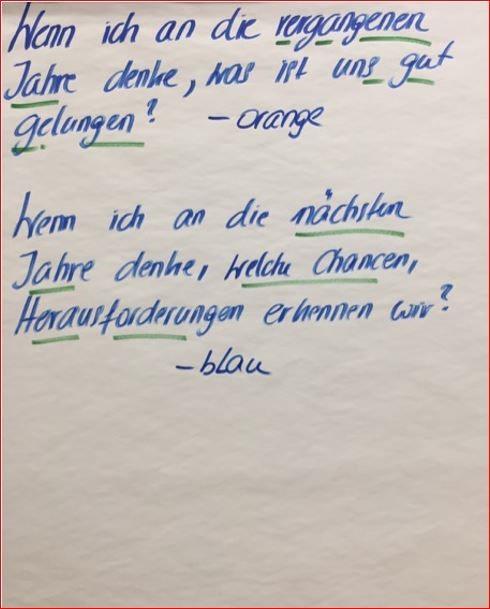 Wenn ich an die vergangenen
Jahre denke, was ist uns gut
gelungen? - orange
Wenn ich an die nächsten
Jahre denke, welche Chancen,
Herausforderungen erkennen wir?
- blau